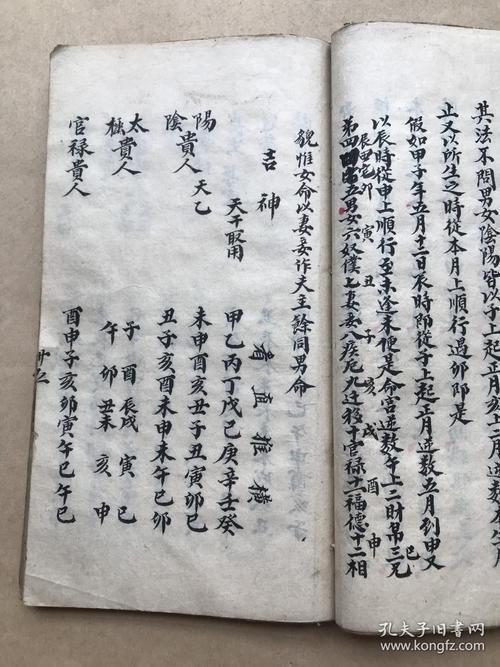 其法不問男女陰陽皆以子上起正月
止又以所生之時從本月上順行遇卯即是
假如甲子年五月十二日辰時即從子上起正月逆數五月到申又
以辰時從申上順行至未逢未便是命宮逆數午上二財帛三兄
辰 巳 卯 寅 丑 子 亥 戌 酉 申 巳
第四 五男女六奴僕七妻妾八疾厄九迁移十官禄十一福德十二相
貌惟女命以妻妾作夫主餘同男命
吉神
天干取用
甲乙丙丁戊己庚辛壬癸
陽貴人 天乙 未申酉亥丑子丑寅卯巳
陰 丑子亥酉未申未午巳卯
太極貴人 子 酉 辰戌 寅 巳
午 卯 丑未 亥 申
官禄貴人 酉申子亥卯寅午巳午巳
廿二
孔夫子旧書网
www.kongfz.com